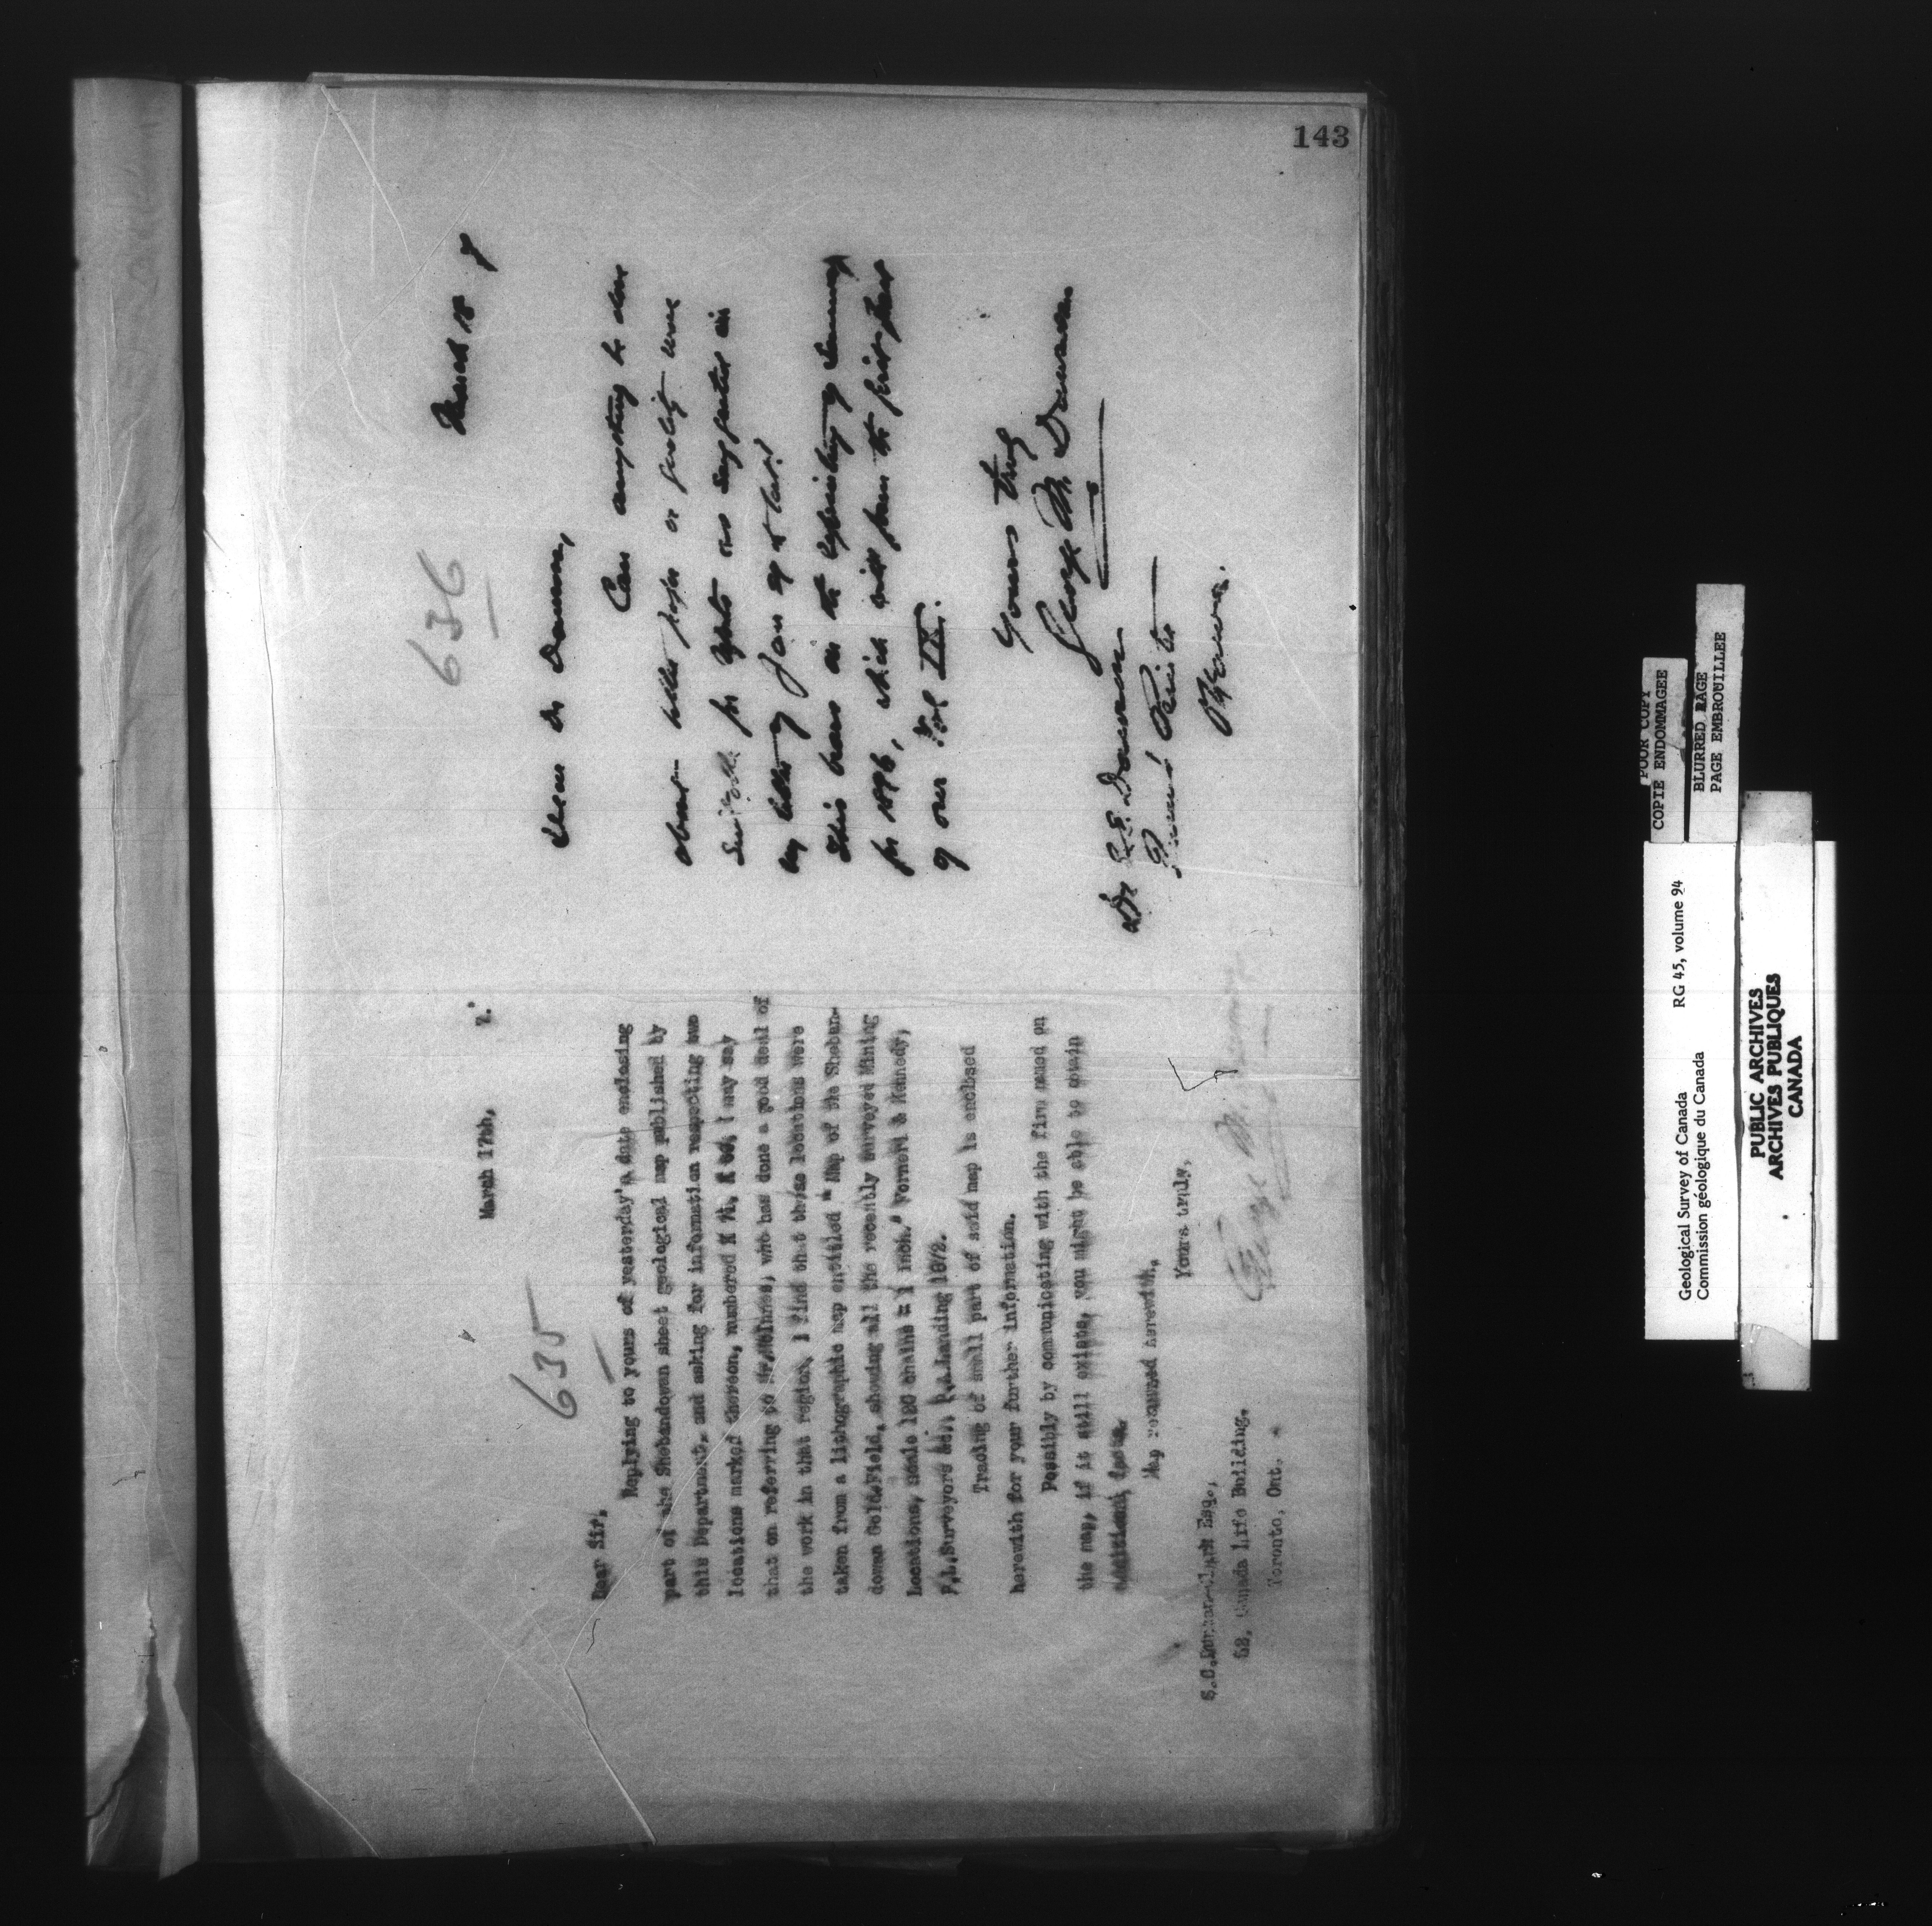 143
635
March 17th, 7.
Dear Sir,
Replying to yours of yesterday's date enclosing
part of the Shebandowan sheet geological map published by
this Department, and asking for information respecting two
locations marked thereon, numbered I may say
that on referring to Mr. McInnes, who has done a good deal of
the work in that region, I find that these locations were
taken from a lithographic map entitled "Map of the Sheban-
dowan Gold Field, showing all the recently surveyed Mining
Locations, scale 120 chains = 1 inch." & Kennedy,
P.L.Surveyors P.A.Landing 1872.
Tracing of small part of said map is enclosed
herewith for your further information.
Possibly by communicating with the firm named on
the map, if it still exists, you might be able to obtain
additional facts.
Map returned herewith.
Yours truly,
George M. Dawson
Esq.,
62, Canada Life Building,
Toronto, Ont.
636
March 18 7
Dear Dr Dawson,
Can anything be done
about better paper or quality more
suitable for as suggested in
my letter of Jan
This bears on the reprinting of Summary
for 1896, which will form the first part
of our Vol IX.
Yours truly
George M. Dawson
Dr S.E. Dawson
Queen's Printer
Ottawa.
POOR COPY
COPIE ENDOMMAGEE
BLURRED PAGE
PAGE EMBROUILLEE
Geological Survey of Canada RG 45, volume 94
Commission géologique du Canada
PUBLIC ARCHIVES
ARCHIVES PUBLIQUES
CANADA